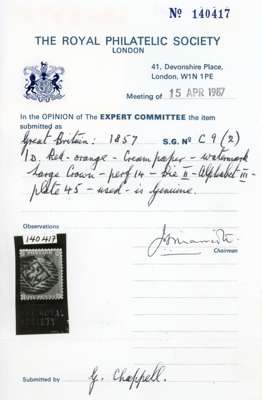 Nº 140417
THE ROYAL PHILATELIC SOCIETY
LONDON
41, Devonshire Place,
London, W1N 1PE
Meeting of 15 APR 1987
In the OPINION of The EXPERT COMMITTEE the item
submitted as
Great Britain: 1857 S.G. Nº C9 (2)
1D. Red-orange - Cream paper - watermark
Large Crown - perf 14 - Die II - Alphabet III -
plate 45 - used - is Genuine.
Observations
140417
Chairman
THE ROYAL
SOCIETY
Submitted by G. Chappell.